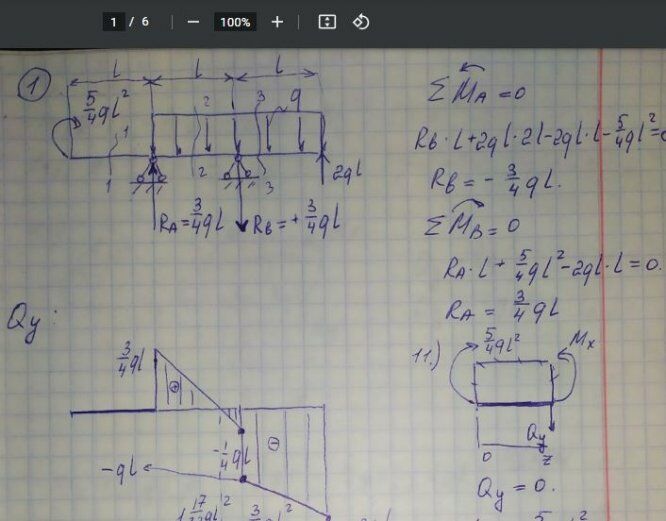 1 / 6 − 100% +
1
l l l
5/4 ql²
1 2 3 q
1 2 3 2ql
R_A = 3/4 ql R_B = + 3/4 ql
Σ M_A = 0
R_B · l + 2ql · 2l - 2ql · l - 5/4 ql² = 0
R_B = - 3/4 ql.
Σ M_B = 0
R_A · l + 5/4 ql² - 2ql · l = 0.
R_A = 3/4 ql
Qy :
3/4 ql
⊕
- 1/4 ql
⊖
- ql
11.) 5/4 ql² Mx
Qy
0 z
Qy = 0.